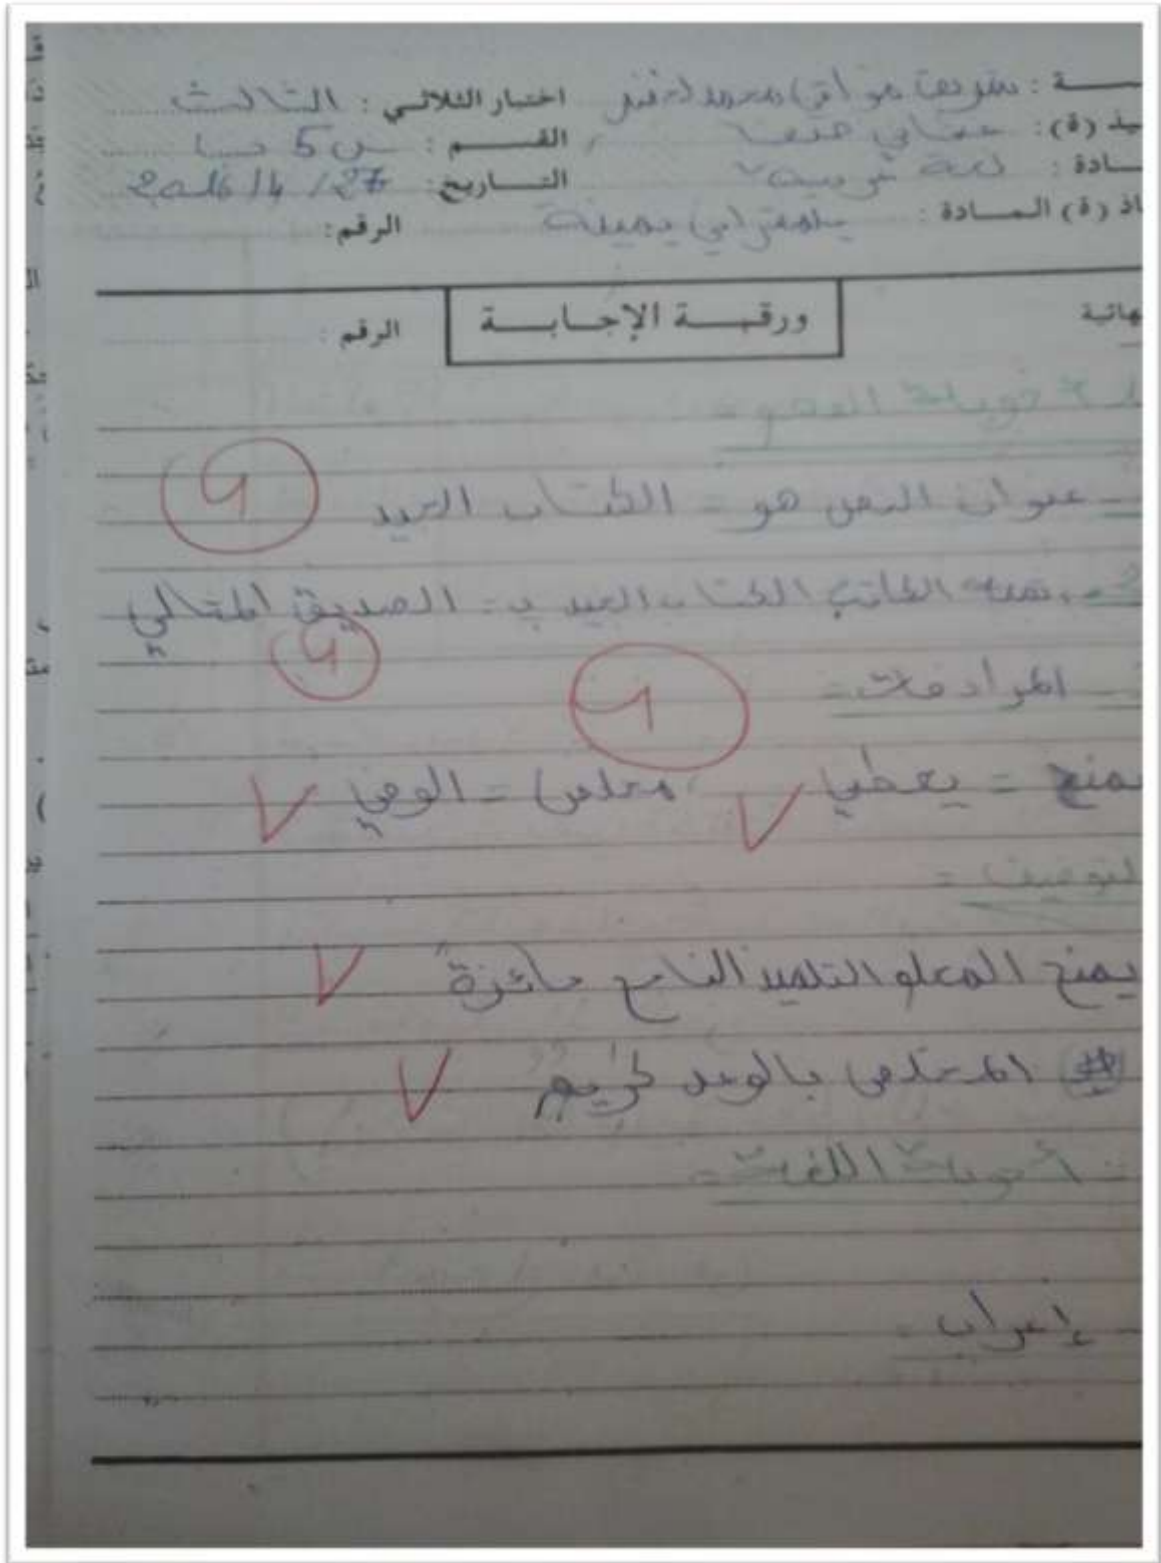 ـة : شريف هواري محمد لخضر اختبار الثلاثي : الثالث
يذ (ة) : القسم : س 5
ـادة : لغة عربية التاريخ : 27 / 4 / 2016
اذ (ة) المادة : يمينة الرقم :
هائية ورقة الإجابة الرقم :
أجوبة الفهم =
- عنوان النص هو = الكتاب الجيد 1
2- شبه الكاتب الكتاب الجيد ب = الصديق المثالي
1
- المرادفات = 1
يمنح = يعطي مخلص = الوفي
التوظيف =
يمنح المعلم التلميذ الناجح جائزة
المخلص بالوعد كريم
- أجوبة اللغة =
- إعراب =